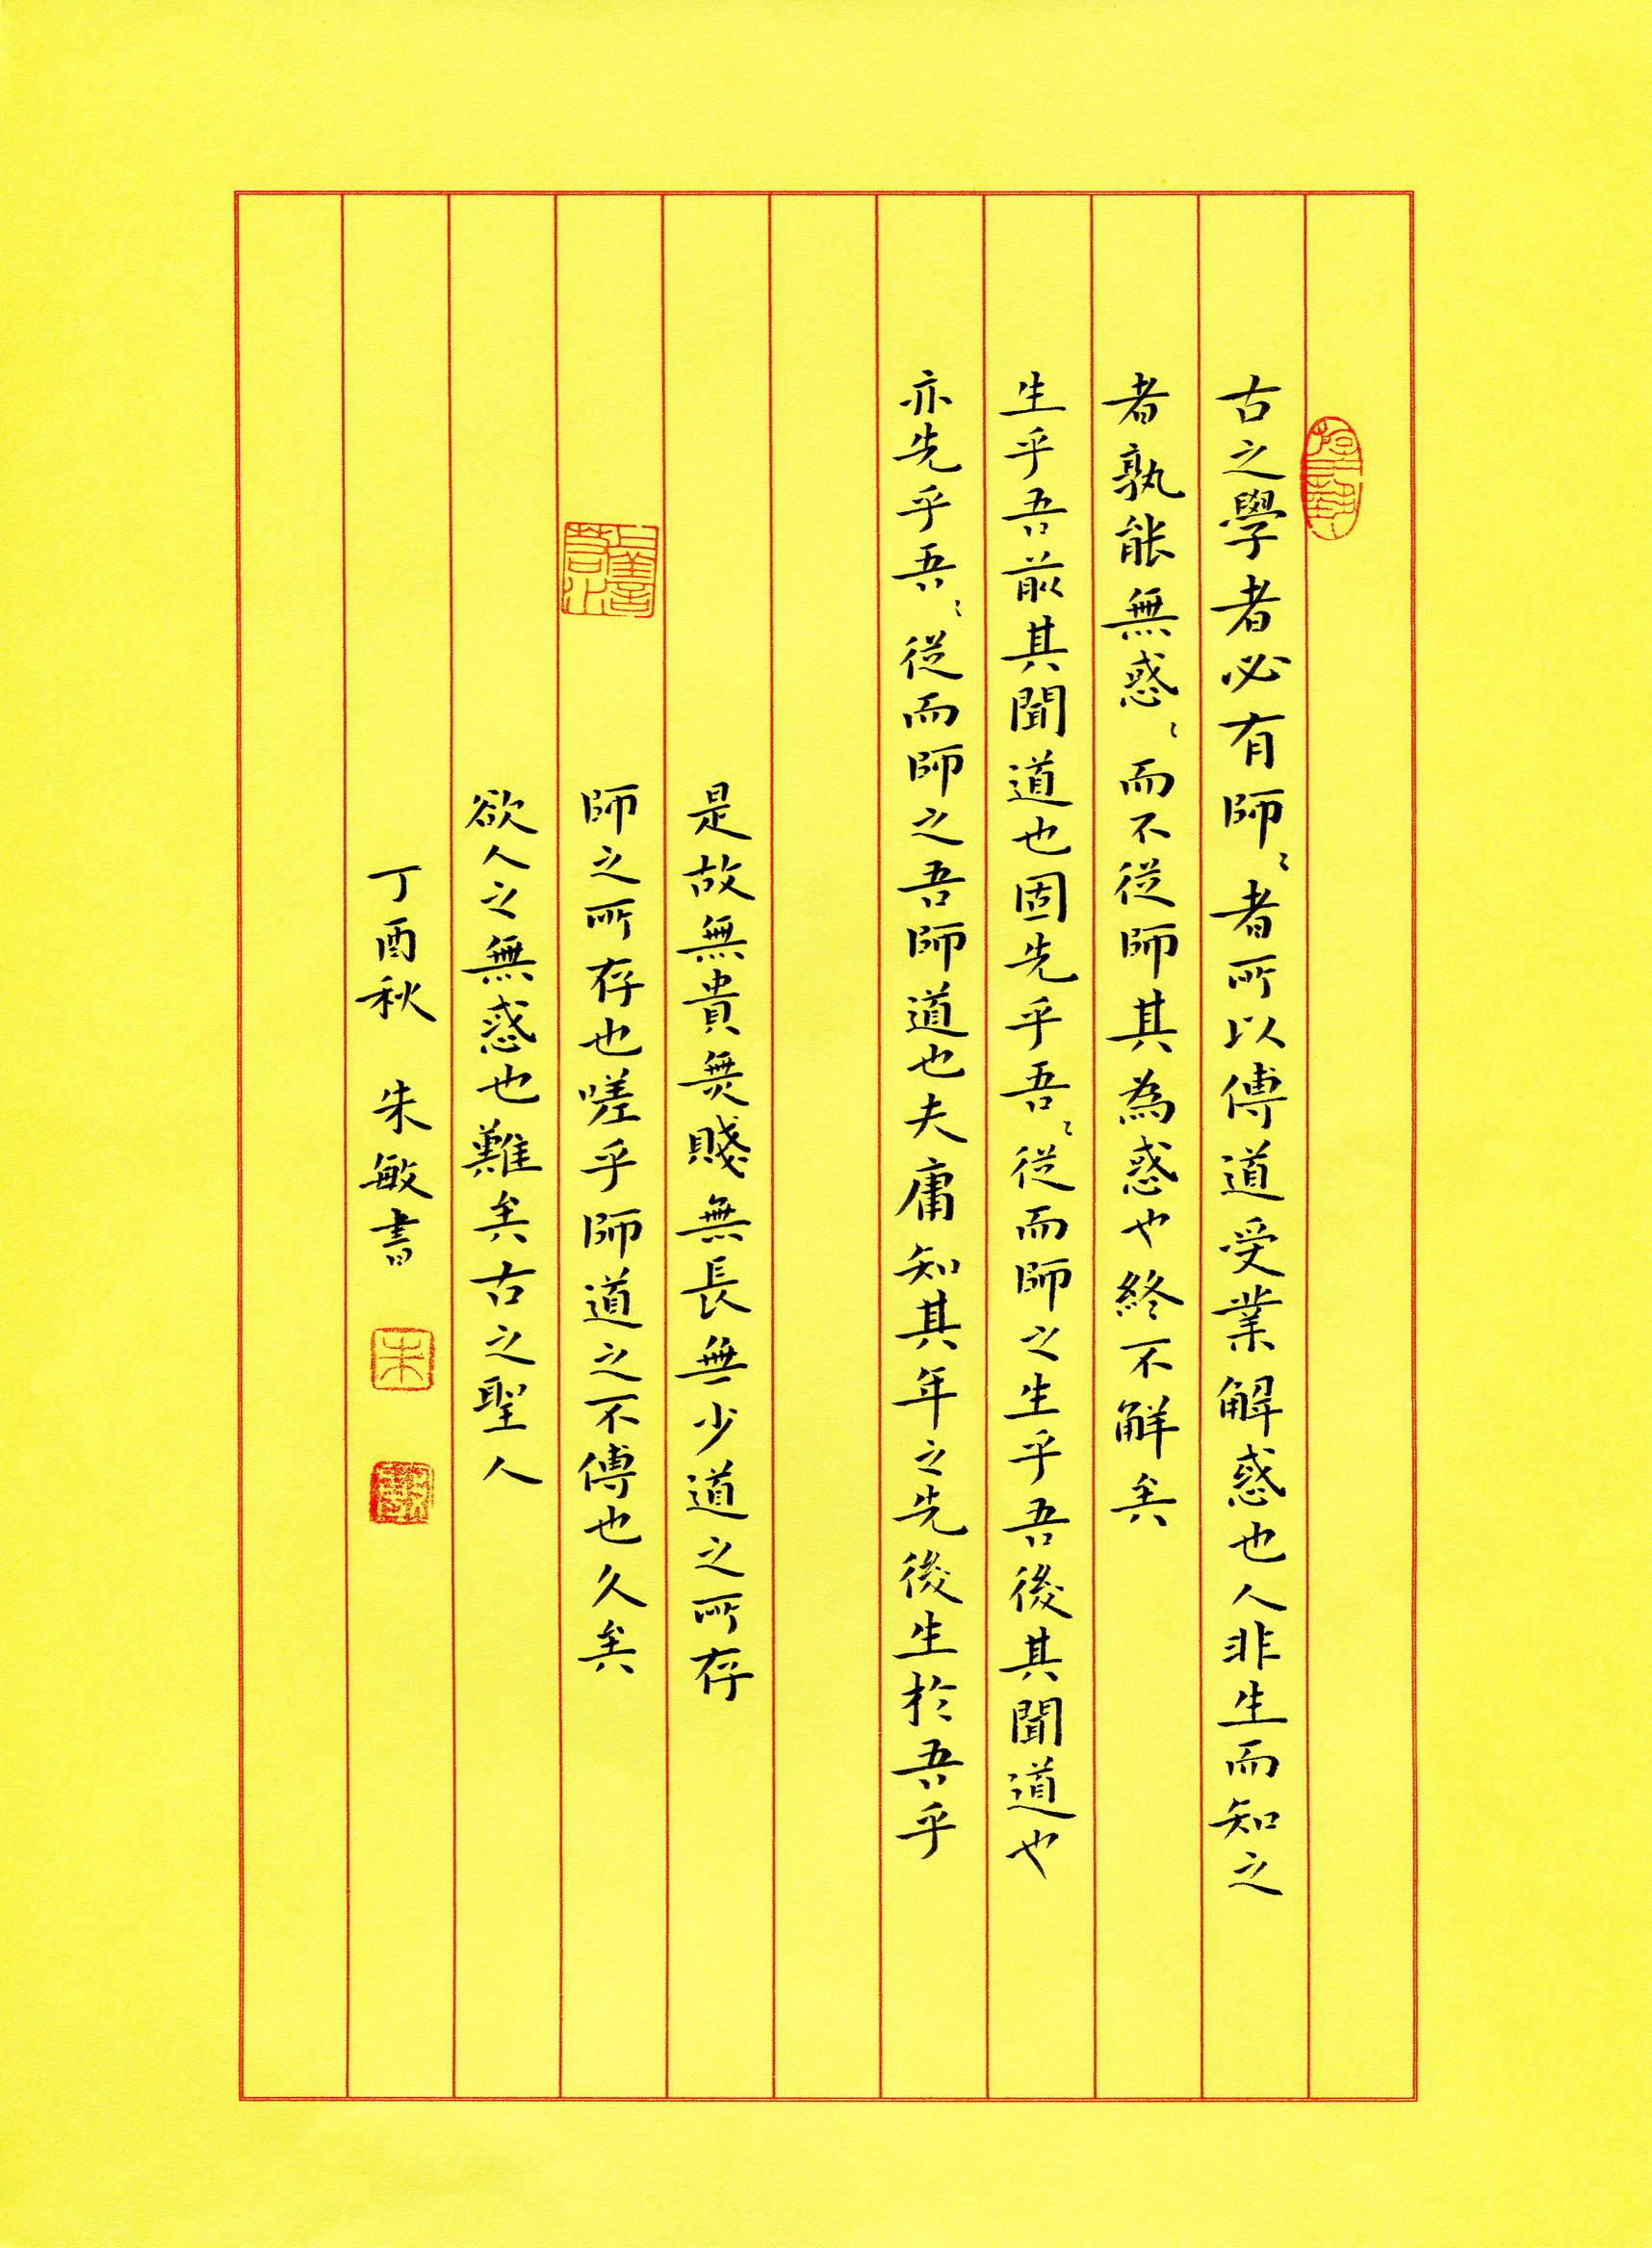 古之學者必有師〻者所以傳道受業解惑也人非生而知之
者孰能無惑〻而不從師其為惑也終不解矣
生乎吾前其聞道也固先乎吾〻從而師之生乎吾後其聞道也
亦先乎吾〻從而師之吾師道也夫庸知其年之先後生於吾乎
是故無貴無賤無長無少道之所存
師之所存也嗟乎師道之不傳也久矣
欲人之無惑也難矣古之聖人
丁酉秋 朱敏書
朱